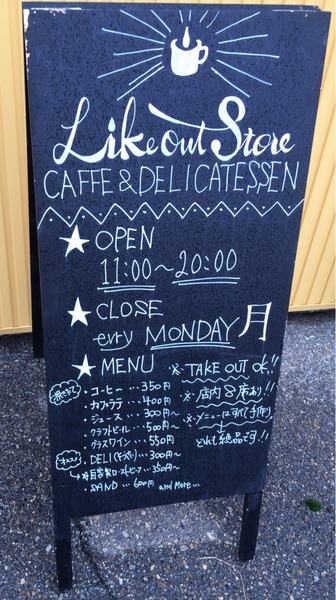 Like out Store
CAFFE & DELICATESSEN
★ OPEN
11:00〜20:00
★ CLOSE
evry MONDAY 月
★ MENU
※ TAKE OUT OK!!
※ 店内8席あり!!
※ メニューはすべて手作り
どれも絶品です!!
・コーヒー…350円
・カフェラテ…400円
・ジュース…300円〜
・クラフトビール…500円〜
・グラスワイン…550円
オススメ
・DELI 300円〜
自家製ローストビーフ…350円〜
・SAND…600円 and More...